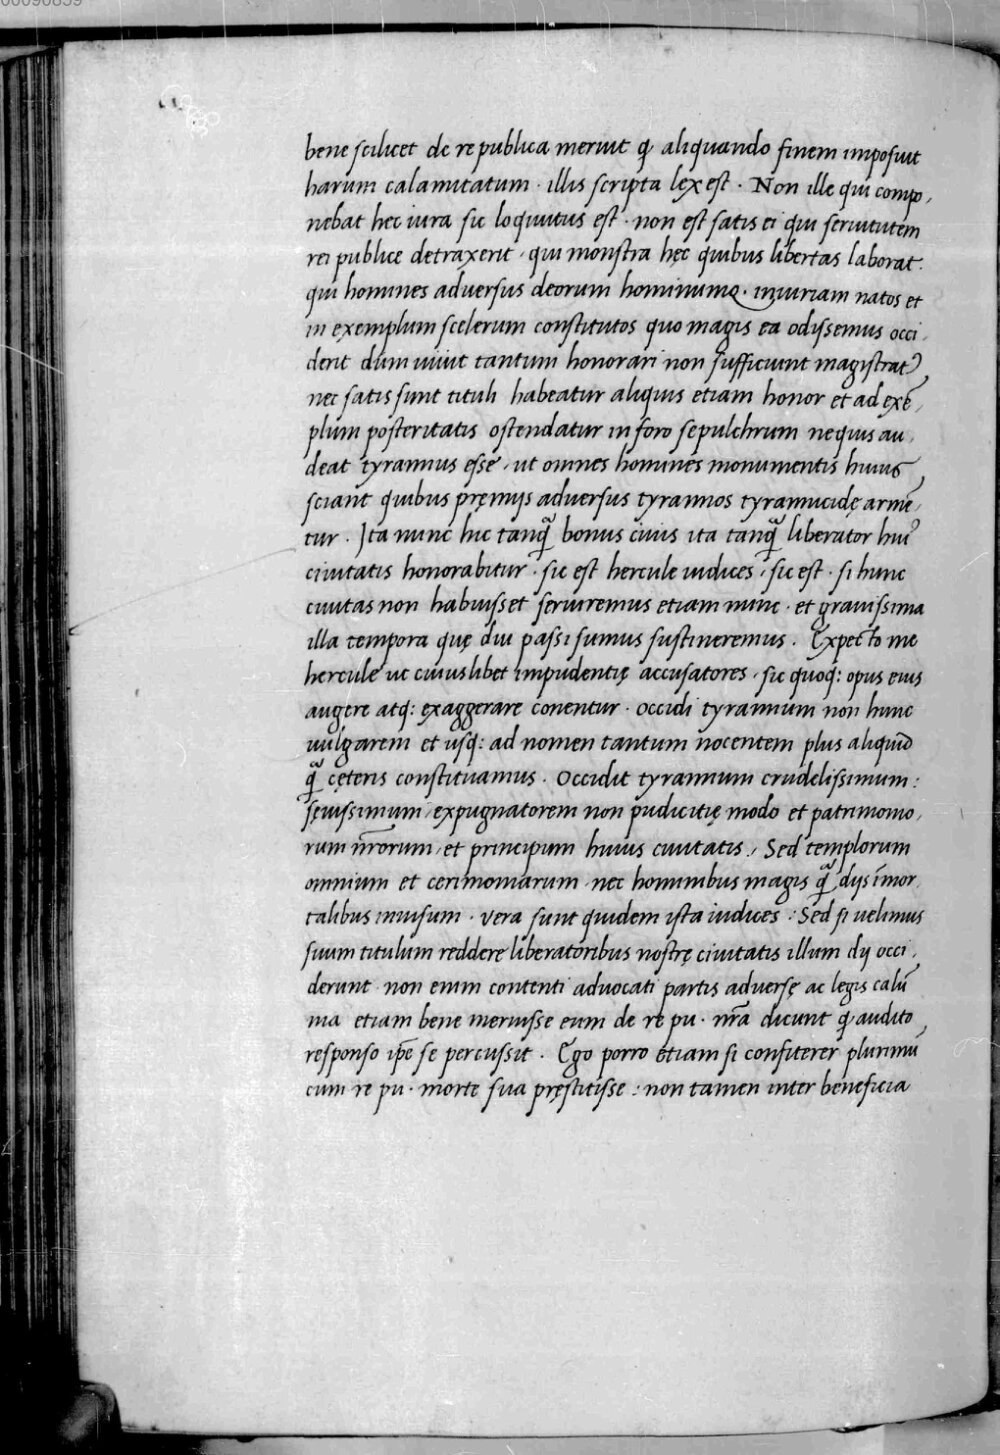 00090839
bene scilicet de re publica meruit q̃ aliquando finem imposuit
harum calamitatum · illis scripta lex est · Non ille qui compo,
nebat hec iura sic loquutus est · non est satis ei qui seruitutem
rei publice detraxerit, qui monstra hęc quibus libertas laborat.
qui homines aduersus deorum hominumq · iniuriam natos et
in exemplum scelerum constitutos quo magis ea odissemus occi,
derit dum uiuit tantum honorari non sufficiunt magistratꝰ
nec satis sunt tituli habeatur aliquis etiam honor et ad exẽ,
plum posteritatis ostendatur in foro sepulchrum ne quis au,
deat tyrannus esse, ut omnes homines monumentis huius
sciant quibus pręmijs aduersus tyrannos tyrannicidę armẽ,
tur. Ita nunc hic tanq̃ bonus ciuis ita tanq̃ liberator huiꝰ
ciuitatis honorabitur · sic est hercule iudices, sic est · si hunc
ciuitas non habuisset seruiremus etiam nunc · et grauissima
illa tempora quę diu passi sumus sustineremus. Expecto me
hercule ut cuiuslibet impudentię accusatores, sic quoq: opus eius
augere atq: exaggerare conentur · occidi tyrannum non hunc
uulgarem et usq: ad nomen tantum nocentem plus aliquid
q̃ cęteris constituamus. Occidit tyrannum crudelissimum:
sęuissimum, expugnatorem non pudicitię modo et patrimonio,
rum nr̃orum, et principum huius ciuitatis, Sed templorum
omnium et cerimoniarum, nec hominibus magis q̃ dijs ĩmor,
talibus inuisum · vera sunt quidem ista iudices: Sed si uelimus
suum titulum reddere liberatoribus nostrę ciuitatis illum dij occi,
derunt · non enim contenti aduocati partis aduersę ac legis calũ
nia etiam bene meruisse eum de re pu · nr̃a dicunt q̃ audito
responso ip̃e se percussit. Ego porro etiam si confiterer plurimũ
cum re pu · morte sua pręstitisse: non tamen inter beneficia